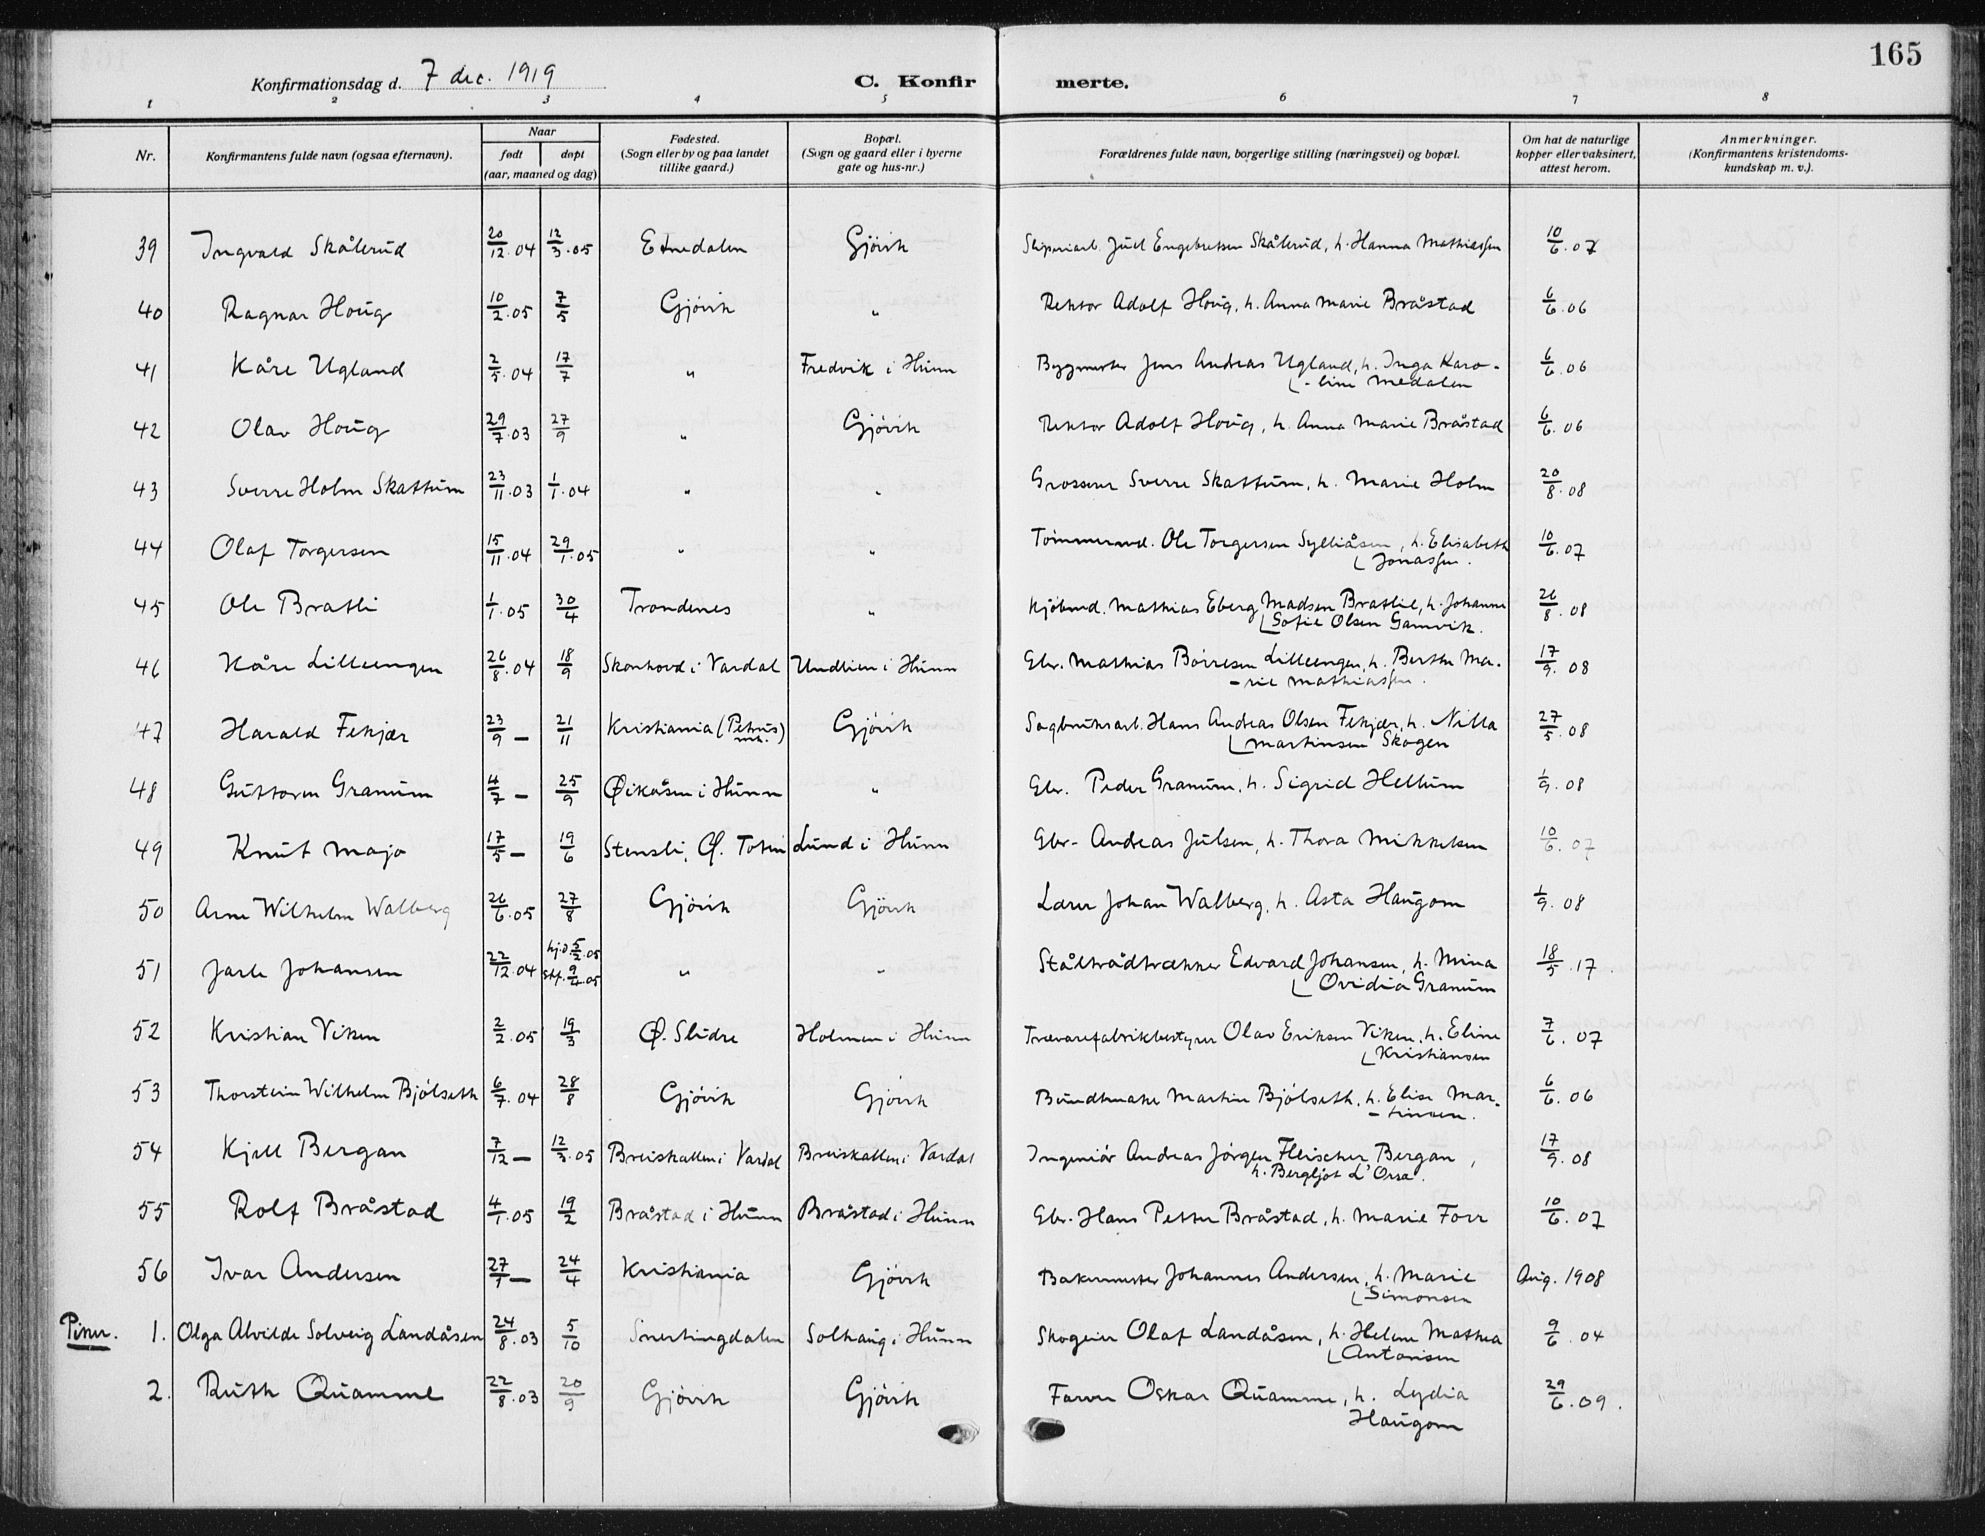 165
Konfirmationsdag d. 7 dec. 1919
C. Konfirmerte.
1 2 3 4 5 6 7 8
Nr.
Konfirmantens fulde navn (ogsaa efternavn).
Naar
født døpt
(aar, maaned og dag)
Fødested.
(Sogn eller by og paa landet
tillike gaard.)
Bopæl.
(Sogn og gaard eller i byerne
gate og hus-nr.)
Forældrenes fulde navn, borgerlige stilling (næringsvei) og bopæl.
Om hat de naturlige
kopper eller vaksinert,
attest herom.
Anmerkninger.
(Konfirmantens kristendoms-
kundskap m. v.).
39 Ingvald Skålerud 20/12.04 12/3.05 Etnedalen Gjövik Sliperiarb. Juel Engebretsen Skålerud, h. Hanna Mathiassen 10/6.07
40 Ragnar Houg 10/2.05 7/5 Gjövik " Rektor Adolf Houg, h. Anna Marie Bråstad 6/6.06
41 Kåre Ugland 2/5.04 17/7 " Fredvik i Hunn Byggmester Jens Andreas Ugland, h. Inga Karo-
-line Medalen 6/6.06
42 Olav Houg 29/7.03 27/9 " Gjövik Rektor Adolf Houg, h. Anna Marie Bråstad 6/6.06
43 Sverre Holm Skattum 23/11.03 1/1.04 " " Grosserer Sverre Skattum, h. Marie Holm 20/8.08
44 Olaf Torgersen 15/11.04 29/1.05 " " Tömmermd. Ole Torgersen Sylliåsen, h. Elisabeth
Jonassen. 10/6.07
45 Ole Bratli 1/1.05 30/4 Trondenes " Kjöbmd. Mathias Eberg Madsen Bratlie, h. Johanne
Sofie Olsen Gamvik. 26/8.08
46 Kåre Lilleengen 26/8.04 18/9 Skonhovd i Vardal Undlien i Hunn Gbr. Mathias Börresen Lilleengen, h. Berthe Ma-
-rie Mathiassen. 17/9.08
47 Harald Fekjær 23/9 — 21/11 Kristiania (Petrus
mk.) Gjövik Sagbruksarb. Hans Andreas Olsen Fekjær, h. Nilla
Martinsen Skogen 27/5.08
48 Guttorm Granum 4/7 — 25/9 Øikåsen i Hunn " Gbr. Peder Granum, h. Sigrid Hellum 1/9.08
49 Knut Majo 17/5 — 19/6 Stensli, Ø. Toten Lund i Hunn Gbr. Andreas Julsen, h. Thora Mikkelsen 10/6.07
50 Arne Wilhelm Walberg 26/6.05 27/8 Gjövik Gjövik Lærer Johan Walberg, h. Asta Haugom 1/9.08
51 Jarle Johansen 22/12.04 hj.d. 5/2.05
stf. 9/4.05 " " Ståltrådtrækker Edvard Johansen, h. Mina
Ovidia Granum 18/5.17.
52 Kristian Viken 2/2.05 19/3 Ø. Slidre Holmen i Hunn Trævarefabrikbestyrer Olav Eriksen Viken, h. Eline
Kristiansen 7/6.07
53 Thorstein Wilhelm Bjölseth 6/7.04 28/8 Gjövik Gjövik Bundtmaker Martin Bjölseth, h. Elise Mar-
-tinsen. 6/6.06
54 Kjell Bergan 7/12 — 12/3.05 Breiskallen i Vardal Breiskallen i Vardal Ingeniör Andreas Jörgen Fleischer Bergan,
h. Bergljot L'Orsa. 17/9.08
55 Rolf Bråstad 4/1.05 19/2 Bråstad i Hunn Bråstad i Hunn Gbr. Hans Petter Bråstad, h. Marie Forr 10/6.07
56 Ivar Andersen 27/1 — 24/4 Kristiania Gjövik Bakermester Johannes Andersen, h. Marie
Simonsen Aug. 1908
Piker. 1. Olga Alvilde Solveig Landåsen 24/8.03 5/10 Snertingdalen Solhaug i Hunn Skogeier Olaf Landåsen, h. Helene Mathea
Antonisen 9/6.04
2. Ruth Quamme 22/8.03 20/9 Gjövik Gjövik Farver Oskar Quamme, h. Lydia
Haugom 29/6.09.